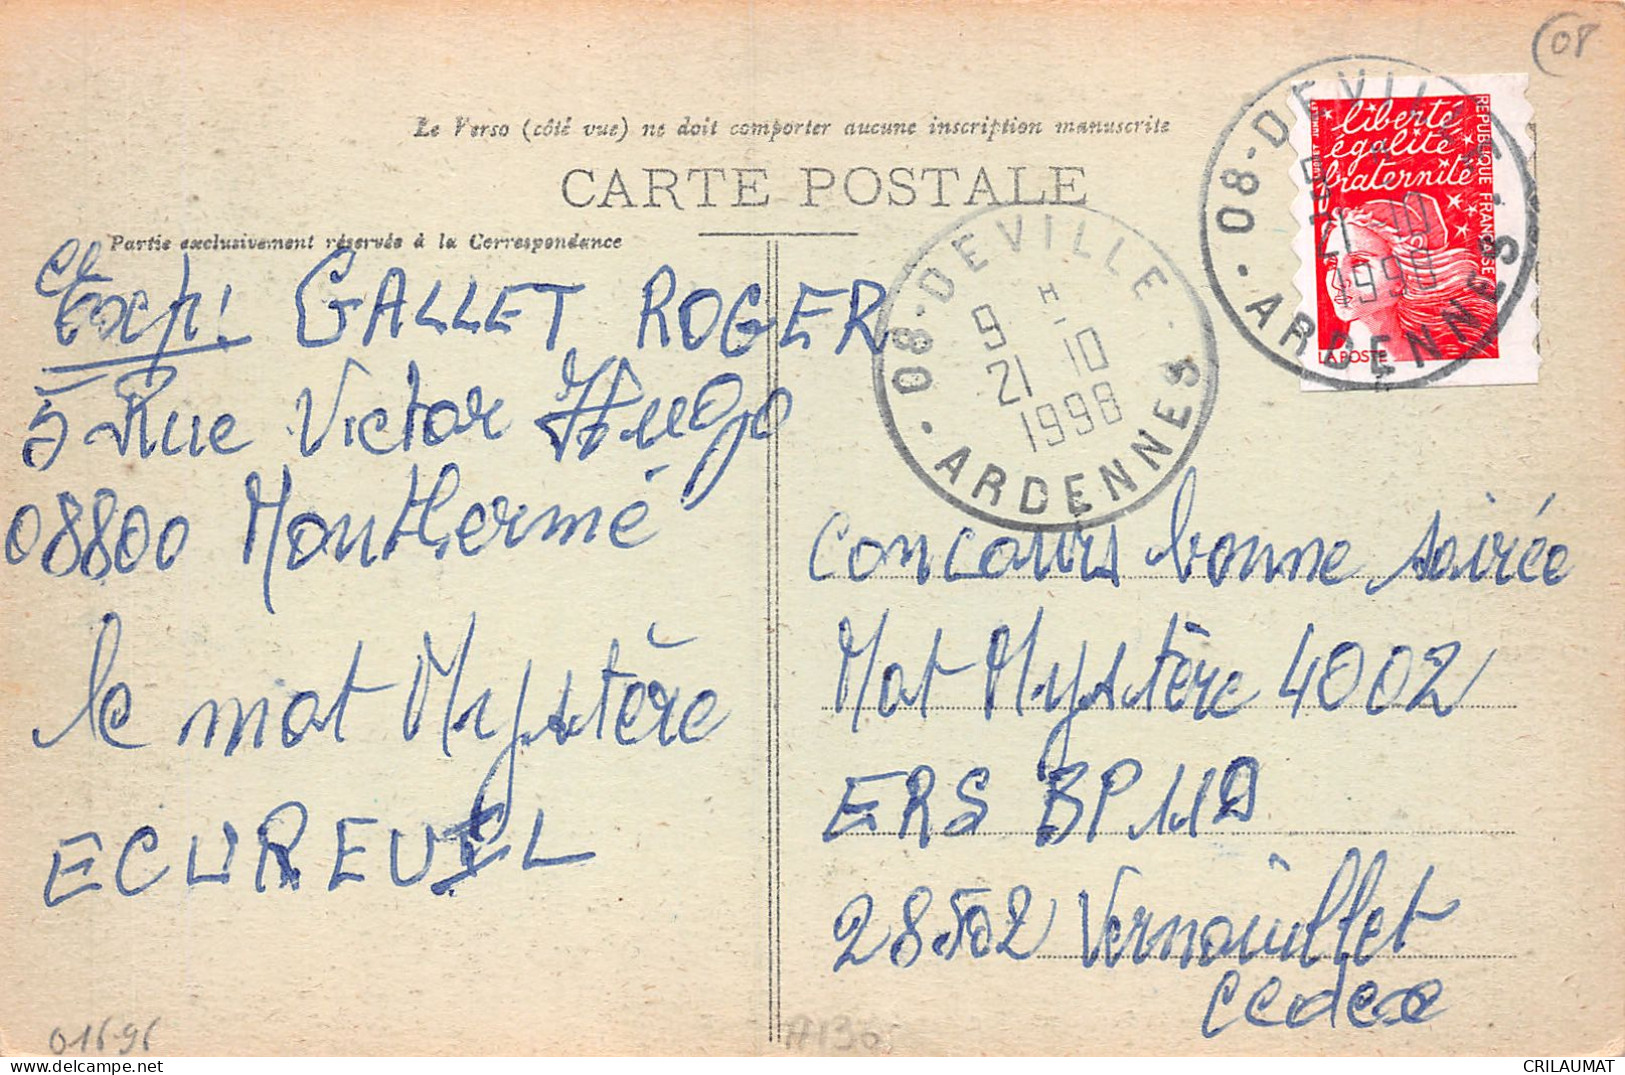 08
Le Verso (côté vue) ne doit comporter aucune inscription manuscrite
CARTE POSTALE
Partie exclusivement réservée à la Correspondance
liberté
égalité
fraternité
REPUBLIQUE FRANÇAISE
LA POSTE
08-DEVILLE
21 10
1998
ARDENNES
08-DEVILLE
9 H
21-10
1998
ARDENNES
Exp: GALLET ROGER
5 Rue Victor Hugo
08800 Monthermé
le mot Mystère
ECUREUIL
Concours bonne soirée
Mot Mystère 4002
ERS BP 110
28502 Vernouillet
Cedex
01696
A130
CRILAUMAT